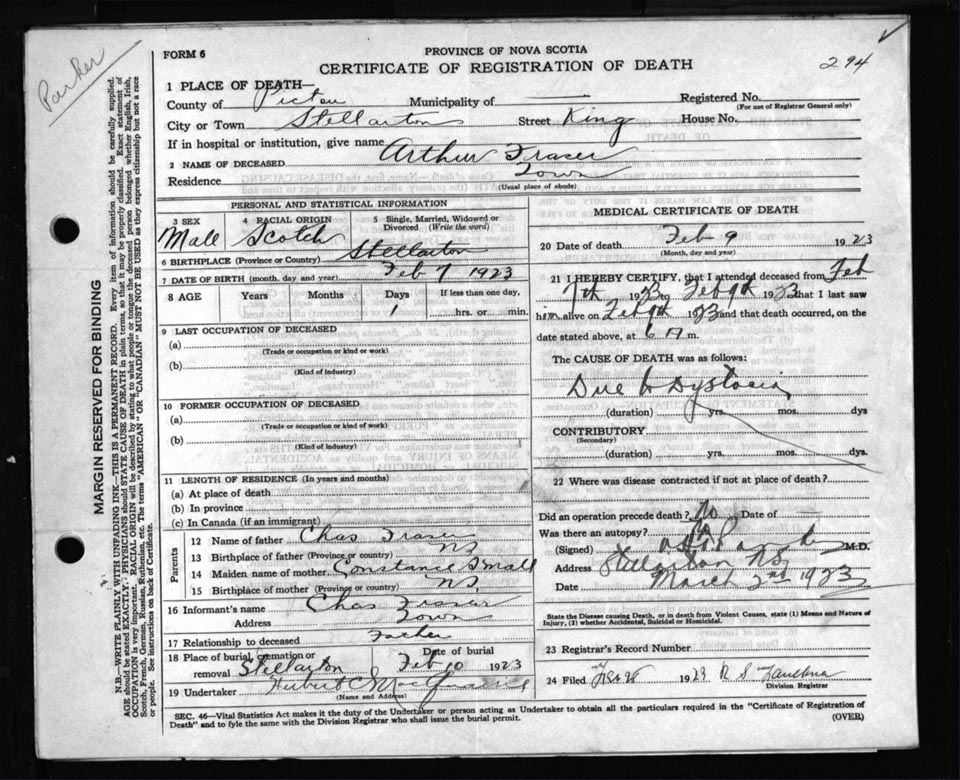 Parker
FORM 6
PROVINCE OF NOVA SCOTIA
CERTIFICATE OF REGISTRATION OF DEATH
294
1 PLACE OF DEATH—
County of Pictou Municipality of — Registered No.
(For use of Registrar General only)
City or Town Stellarton Street King House No.
If in hospital or institution, give name
2 NAME OF DECEASED Arthur Fraser
Residence Town
(Usual place of abode)
PERSONAL AND STATISTICAL INFORMATION
3 SEX 4 RACIAL ORIGIN 5 Single, Married, Widowed or Divorced (Write the word)
Male Scotch
6 BIRTHPLACE (Province or Country) Stellarton
7 DATE OF BIRTH (month, day and year) Feb 7 1923
8 AGE Years Months Days If less than one day,
1 hrs. or min.
9 LAST OCCUPATION OF DECEASED
(a)
(Trade or occupation or kind or work)
(b)
(Kind of industry)
10 FORMER OCCUPATION OF DECEASED
(a)
(Trade or occupation or kind or work)
(b)
(Kind of industry)
11 LENGTH OF RESIDENCE (In years and months)
(a) At place of death
(b) In province
(c) In Canada (if an immigrant)
Parents
12 Name of father Chas Fraser
13 Birthplace of father (Province or country) NS
14 Maiden name of mother Constance Small
15 Birthplace of mother (Province or country) NS
16 Informant's name Chas Fraser
Address Town
17 Relationship to deceased Father
18 Place of burial, cremation or removal Stellarton Feb 10 1923
19 Undertaker Hubert C
(Name and Address)
MEDICAL CERTIFICATE OF DEATH
20 Date of death Feb 9 1923
(Month, day and year)
21 I HEREBY CERTIFY, that I attended deceased from Feb
7th 1923 to Feb 9th 1923 that I last saw
him alive on Feb 9th 1923 and that death occurred, on the
date stated above, at 6 A m.
The CAUSE OF DEATH was as follows:
Due to Dystocia
(duration) yrs. mos. dys
CONTRIBUTORY
(Secondary)
(duration) yrs. mos. dys.
22 Where was disease contracted if not at place of death?
Did an operation precede death? No Date of —
Was there an autopsy? No
(Signed) M.D.
Address Stellarton NS
Date March 2nd 1923
State the Disease causing Death, or in death from Violent Causes, state (1) Means and Nature of
Injury, (2) whether Accidental, Suicidal or Homicidal.
23 Registrar's Record Number
24 Filed 1923 R S
Division Registrar
SEC. 46—Vital Statistics Act makes it the duty of the Undertaker or person acting as Undertaker to obtain all the particulars required in the "Certificate of Registration of
Death" and to fyle the same with the Division Registrar who shall issue the burial permit.
(OVER)
MARGIN RESERVED FOR BINDING
N.B.—WRITE PLAINLY WITH UNFADING INK—THIS IS A PERMANENT RECORD. Every item of Information should be carefully supplied.
AGE should be stated EXACTLY. PHYSICIANS should STATE CAUSE OF DEATH in plain terms, so that it may be properly classified. Exact statement of
OCCUPATION is very important. RACIAL ORIGIN will be described by stating to what people or tongue the deceased person belonged whether English, Irish,
Scotch, French, German, Russian, Ruthenian, etc. The terms "AMERICAN" OR "CANADIAN" MUST NOT BE USED as they express citizenship but not a race
or people. See instructions on back of Certificate.